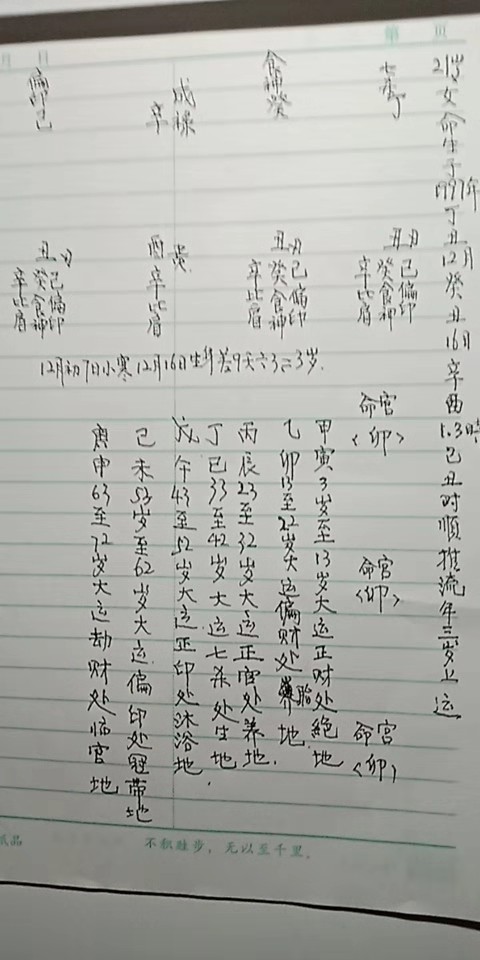 21岁女命生于1997年丁丑12月癸丑16日辛酉1.3時己丑时顺推流年三岁上运
七杀丁
食神癸
辛
偏印己
丑
己偏印
癸食神
辛比肩
丑
己偏印
癸食神
辛比肩
酉
辛比肩
丑
己偏印
癸食神
辛比肩
12月初7日小寒12月16日生
3岁.
命宫
<卯>
命宫
<卯>
命宫
<卯>
甲寅3岁至13岁大运正财处絕地
乙卯13至22岁大运偏财处胎地.
丙辰23至32岁大运正官处养地.
丁巳33至42岁大运七杀处生地.
戊午43至52岁大运正印处沐浴地
己未53岁至62岁大运偏印处冠带地
庚申63至72岁大运劫财处临官地
第 页
月 日
纸品
不积跬步，无以至千里。